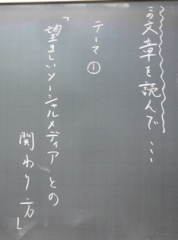 この文章を読んで…
テーマ①
「望ましいソーシャルメディアとの
関わり方」